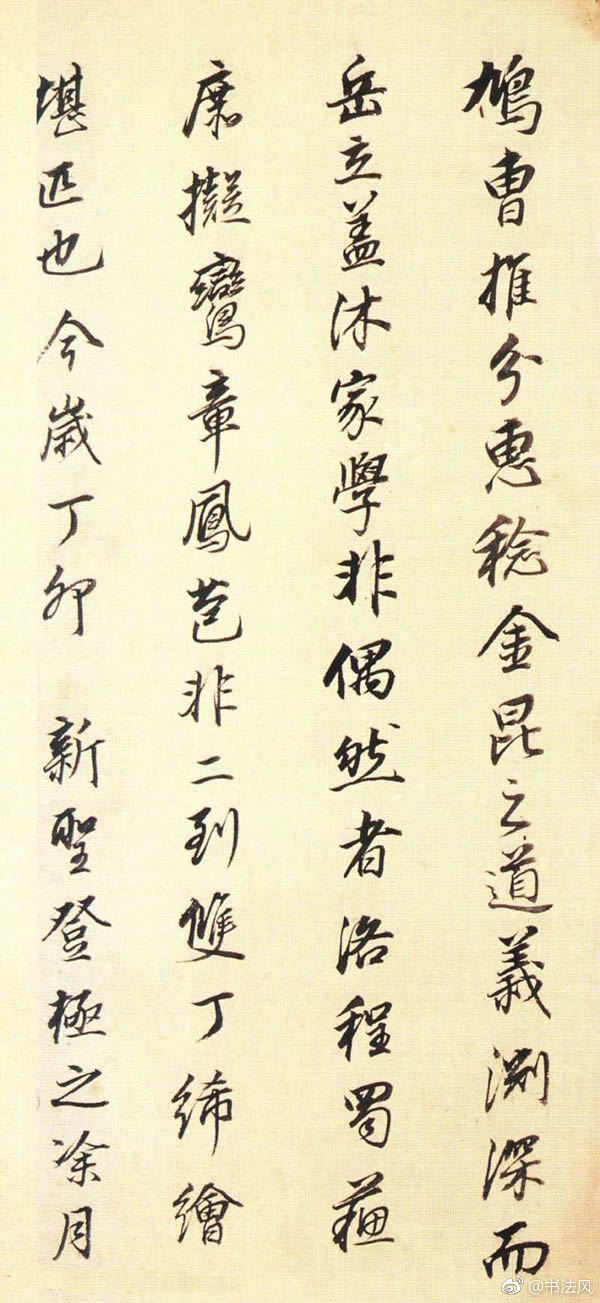 鳩曹推分惠稔金昆之道義淵深而
岳立蓋沐家學非偶然者洛程蜀蘓
庶擬鸞章鳳苞非二到雙丁絺繪
堪匹也今歲丁卯 新聖登極之涂月
@书法风